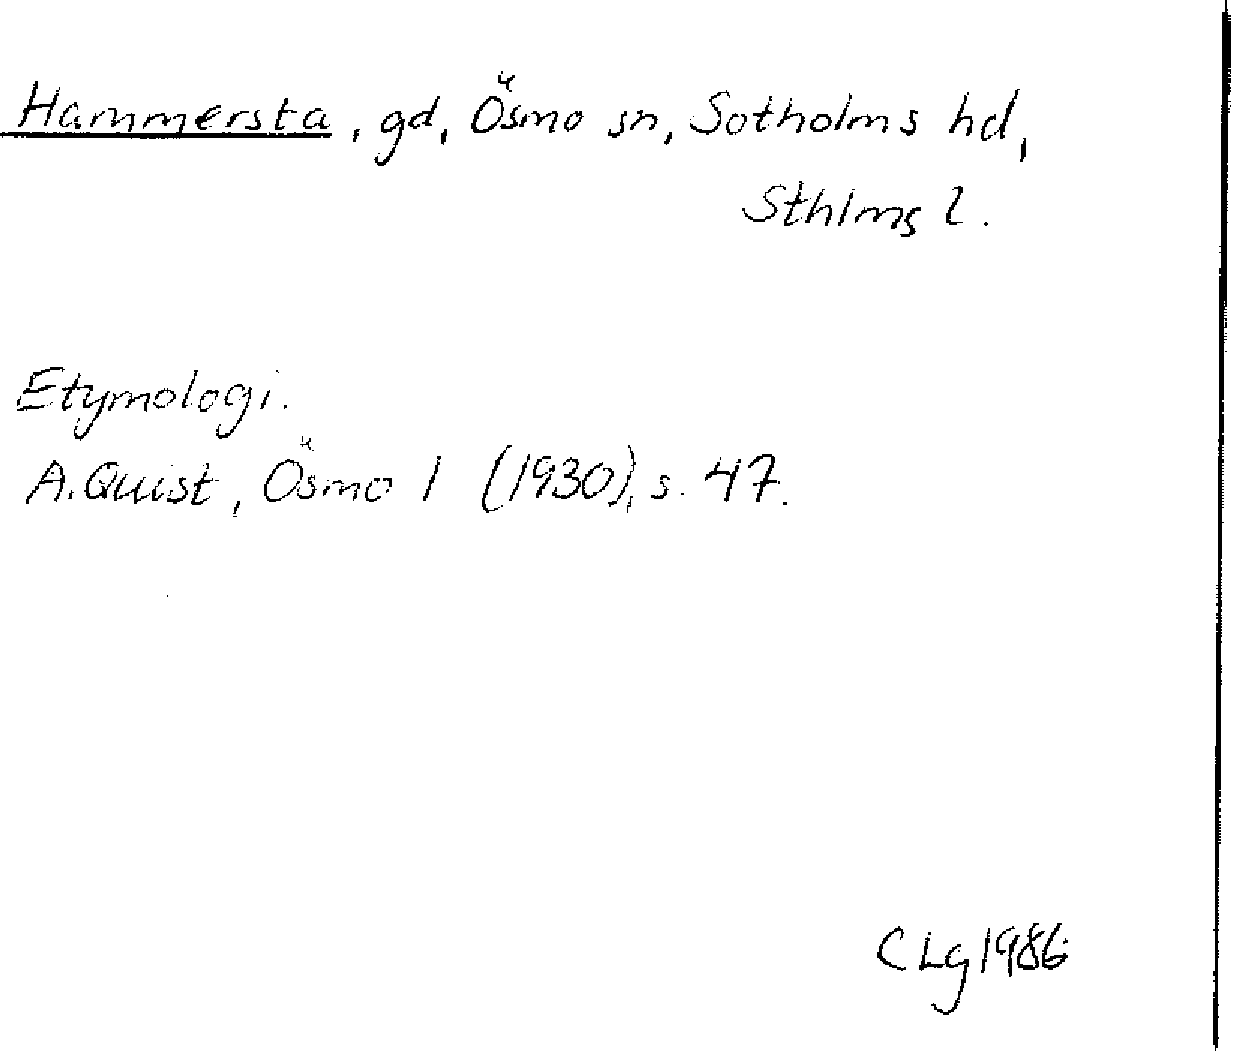 Hammersta, gd, Ösmo sn, Sotholms hd,
Sthlms l.
Etymologi.
A. Quist, Ösmo 1 (1930), s. 47.
CLg 1986